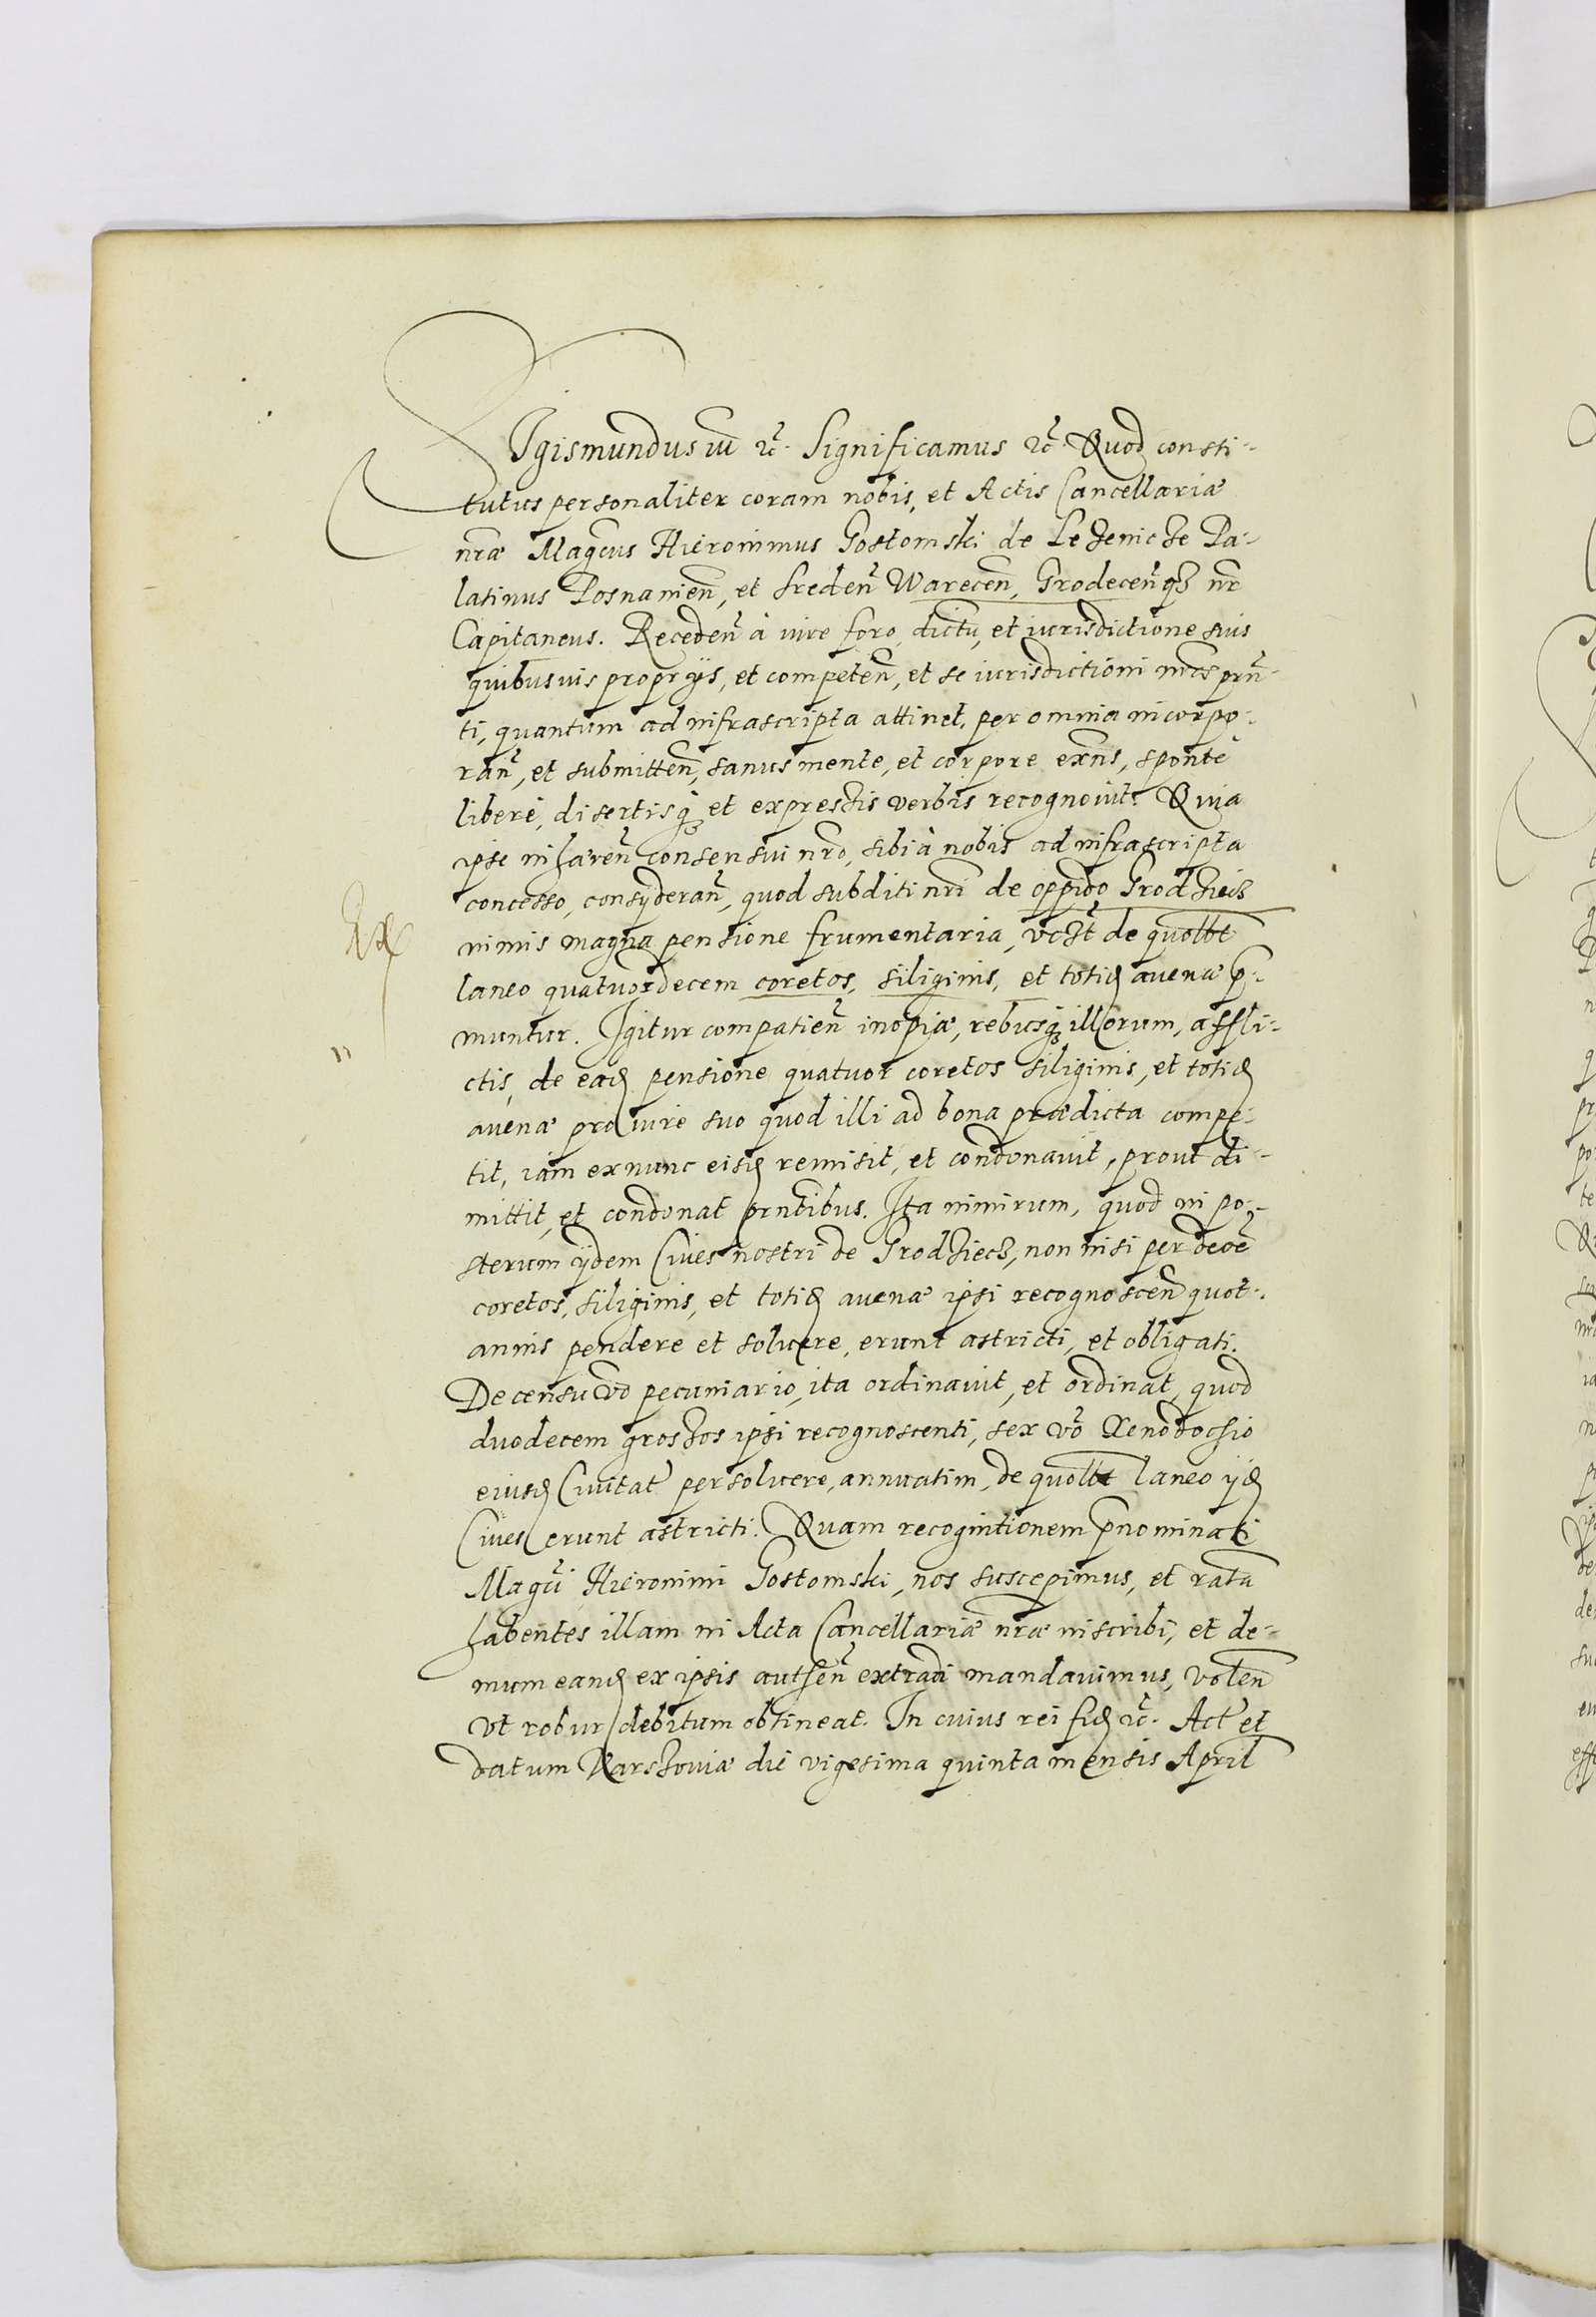 Sigismundus iii &c. Significamus &c. Quod consti-
tutus personaliter coram nobis, et Actis Cancellariæ
nræ Magcus Hieronimus Gostomski de Lezenicze Pa-
latinus Posnanien, et Sreden Warecen, Grodecenq3 nr
Capitaneus. Receden à iure foro, dictu, et iurisdictione suis
quibusuis proprijs, et competen, et se iurisdictioni nræ prn-
ti, quantum ad infrascripta attinet, per omnia incorpo-
ran, et submitten, sanus mente, et corpore exns, sponte
libere, disertisq3 et expressis verbis recognouit. Quia
ipse inhæren consensui nro, sibi à nobis ad infrascripta
concesso, consyderan, quod subditi nri de oppido Grodziecz
nimis magna pensione frumentaria, vczt de quolbt
laneo quatuordecem coretos, siliginis, et totid avenæ p-
muntur. Igitur compatien inopiæ, rebusq3 illorum, affli-
ctis, de ead pensione quatuor coretos siliginis, et totid
auenæ pro iure suo quod illi ad bona prædicta compe-
tit, iam exnunc eisd remisit, et condonauit, prout di-
mittit, et condonat prntibus. Ita nimirum, quod in po-
sterum ijdem Ciues nostri de Grodziecz, non nisi per dece
coretos, siliginis, et totid auenæ ipsi recognoscen quot-
annis pendere et soluere, erunt astricti, et obligati.
De censu vo pecuniario, ita ordinauit, et ordinat, quod
duodecem groszos ipsi recognoscenti, sex vo Xenodochio
eiusd Ciuitat persoluere, annuatim, de quolbt laneo ijd
Ciues erunt astricti. Quam recognitionem pnominati
Magci Hieronimi Gostomski, nos suscepimus, et ratu
habentes illam in Acta Cancellariæ nræ inscribi, et de-
mum eand ex ipsis authen extradi mandauimus, volen
vt robur debitum obtineat. In cuius rei fid &c. Act et
datum Varszouiæ die vigesima quinta mensis April